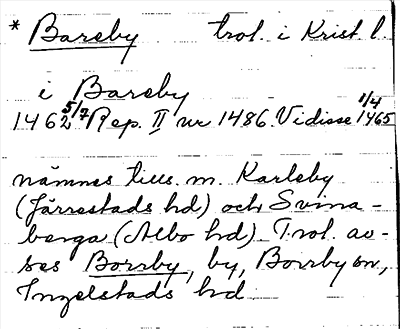 * Barsby trol. i Krist. l.
i Barsby
1462 5/7 Rep. II nr 1486. Vidisse 1/4 1465
nämnes tills. m. Karleby
(Järrestads hd) och Svina-
berga (Albo hd). Trol. av-
ses Borrby, by, Borrby sn,
Ingelstads hd